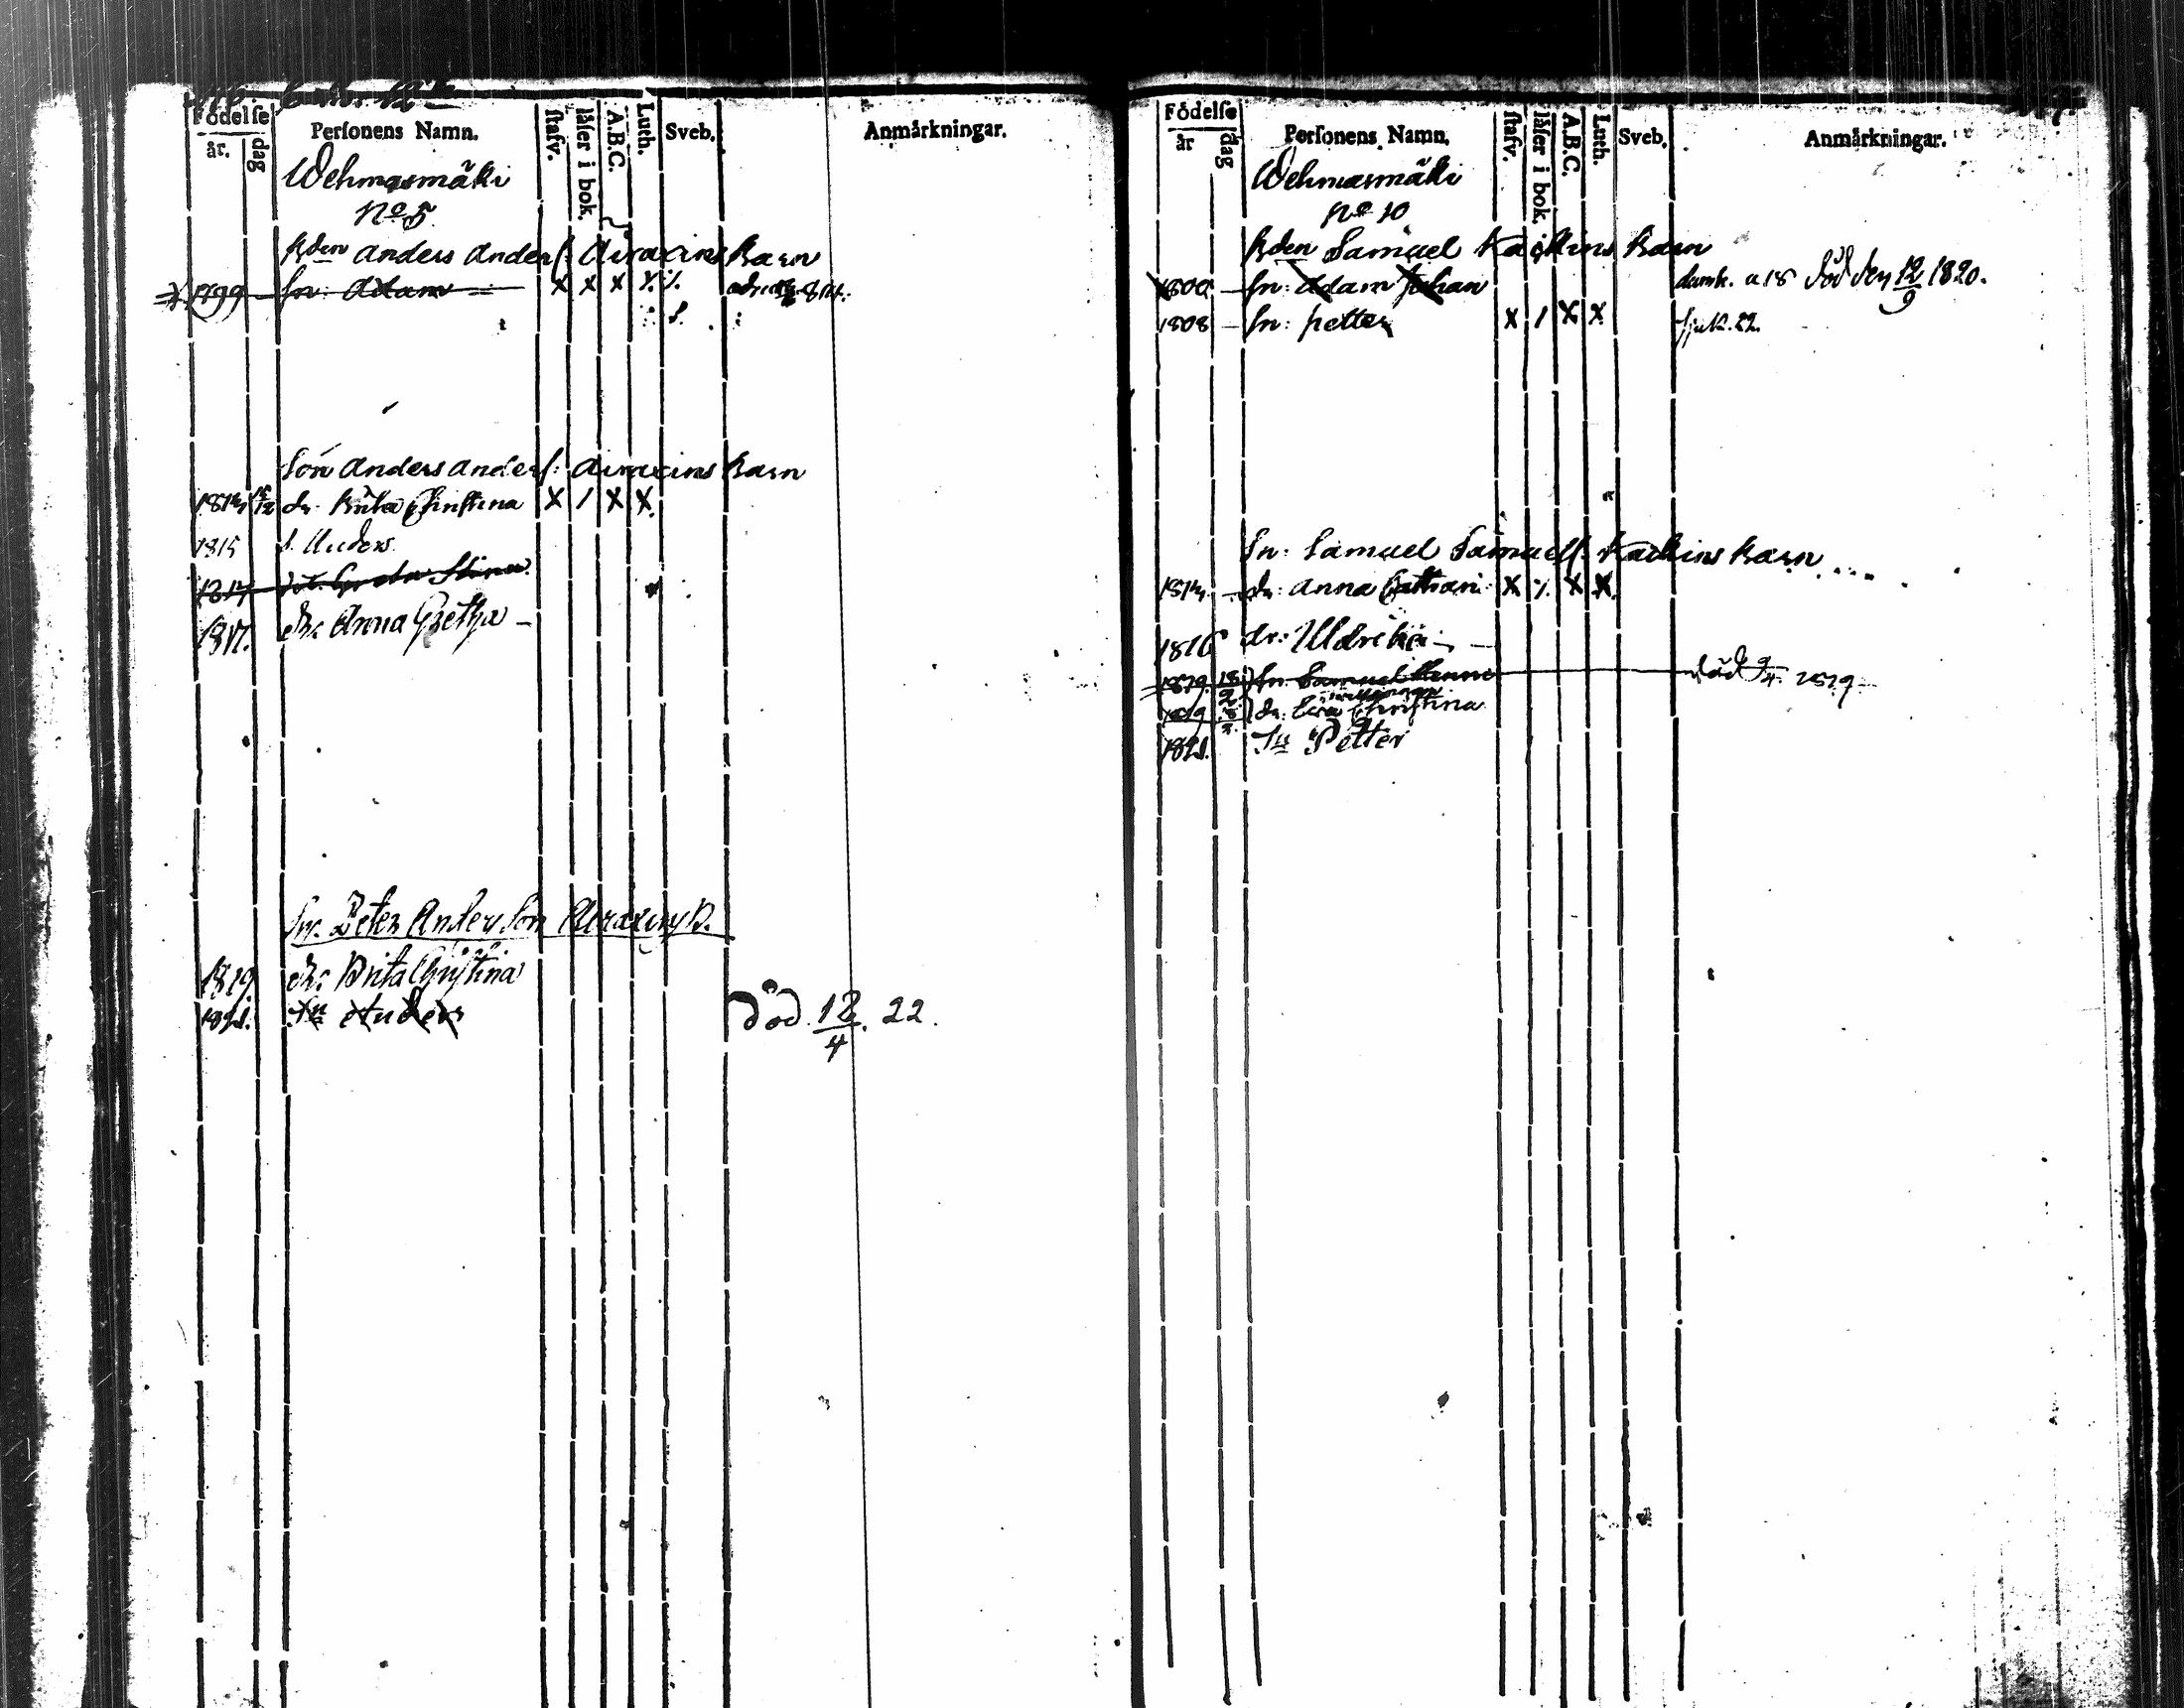 Födelse
år. dag Personens Namn. stafv. läser i bok. A.B.C. Luth. Sveb. Anmärkningar.
Wehmasmäki
No 5
Bden Anders Anders: Airaxins Barn
1799 Sn: Adam X X X
Son Anders Anders: Airaxins Barn
1814 dr. Brita Christina X / X X
1815 S. Anders
1817 Greta Stina
1817. dr. Anna Gretha
Sn. Peter Anderson Airaxins B.
1819 dr. Brita Christina
1821. Sn Anders död 12/4. 22.
Födelse
år dag Personens Namn. stafv. läser i bok. A.B.C. Luth. Sveb. Anmärkningar.
Wehmasmäki
No 10
Bden Samuel Barn
1800 Sn: Adam Johan död den 12/9 1820.
1808 Sn: Petter X / X X
Sn: Samuel Samuels: Barn
1814 dr: Anna Cathari: X X X
1816 dr: Uldrika
1819 18/2 Sn. Samuel död 9/4 1819
1819 dr: Eva Christina
1821. Sn Petter